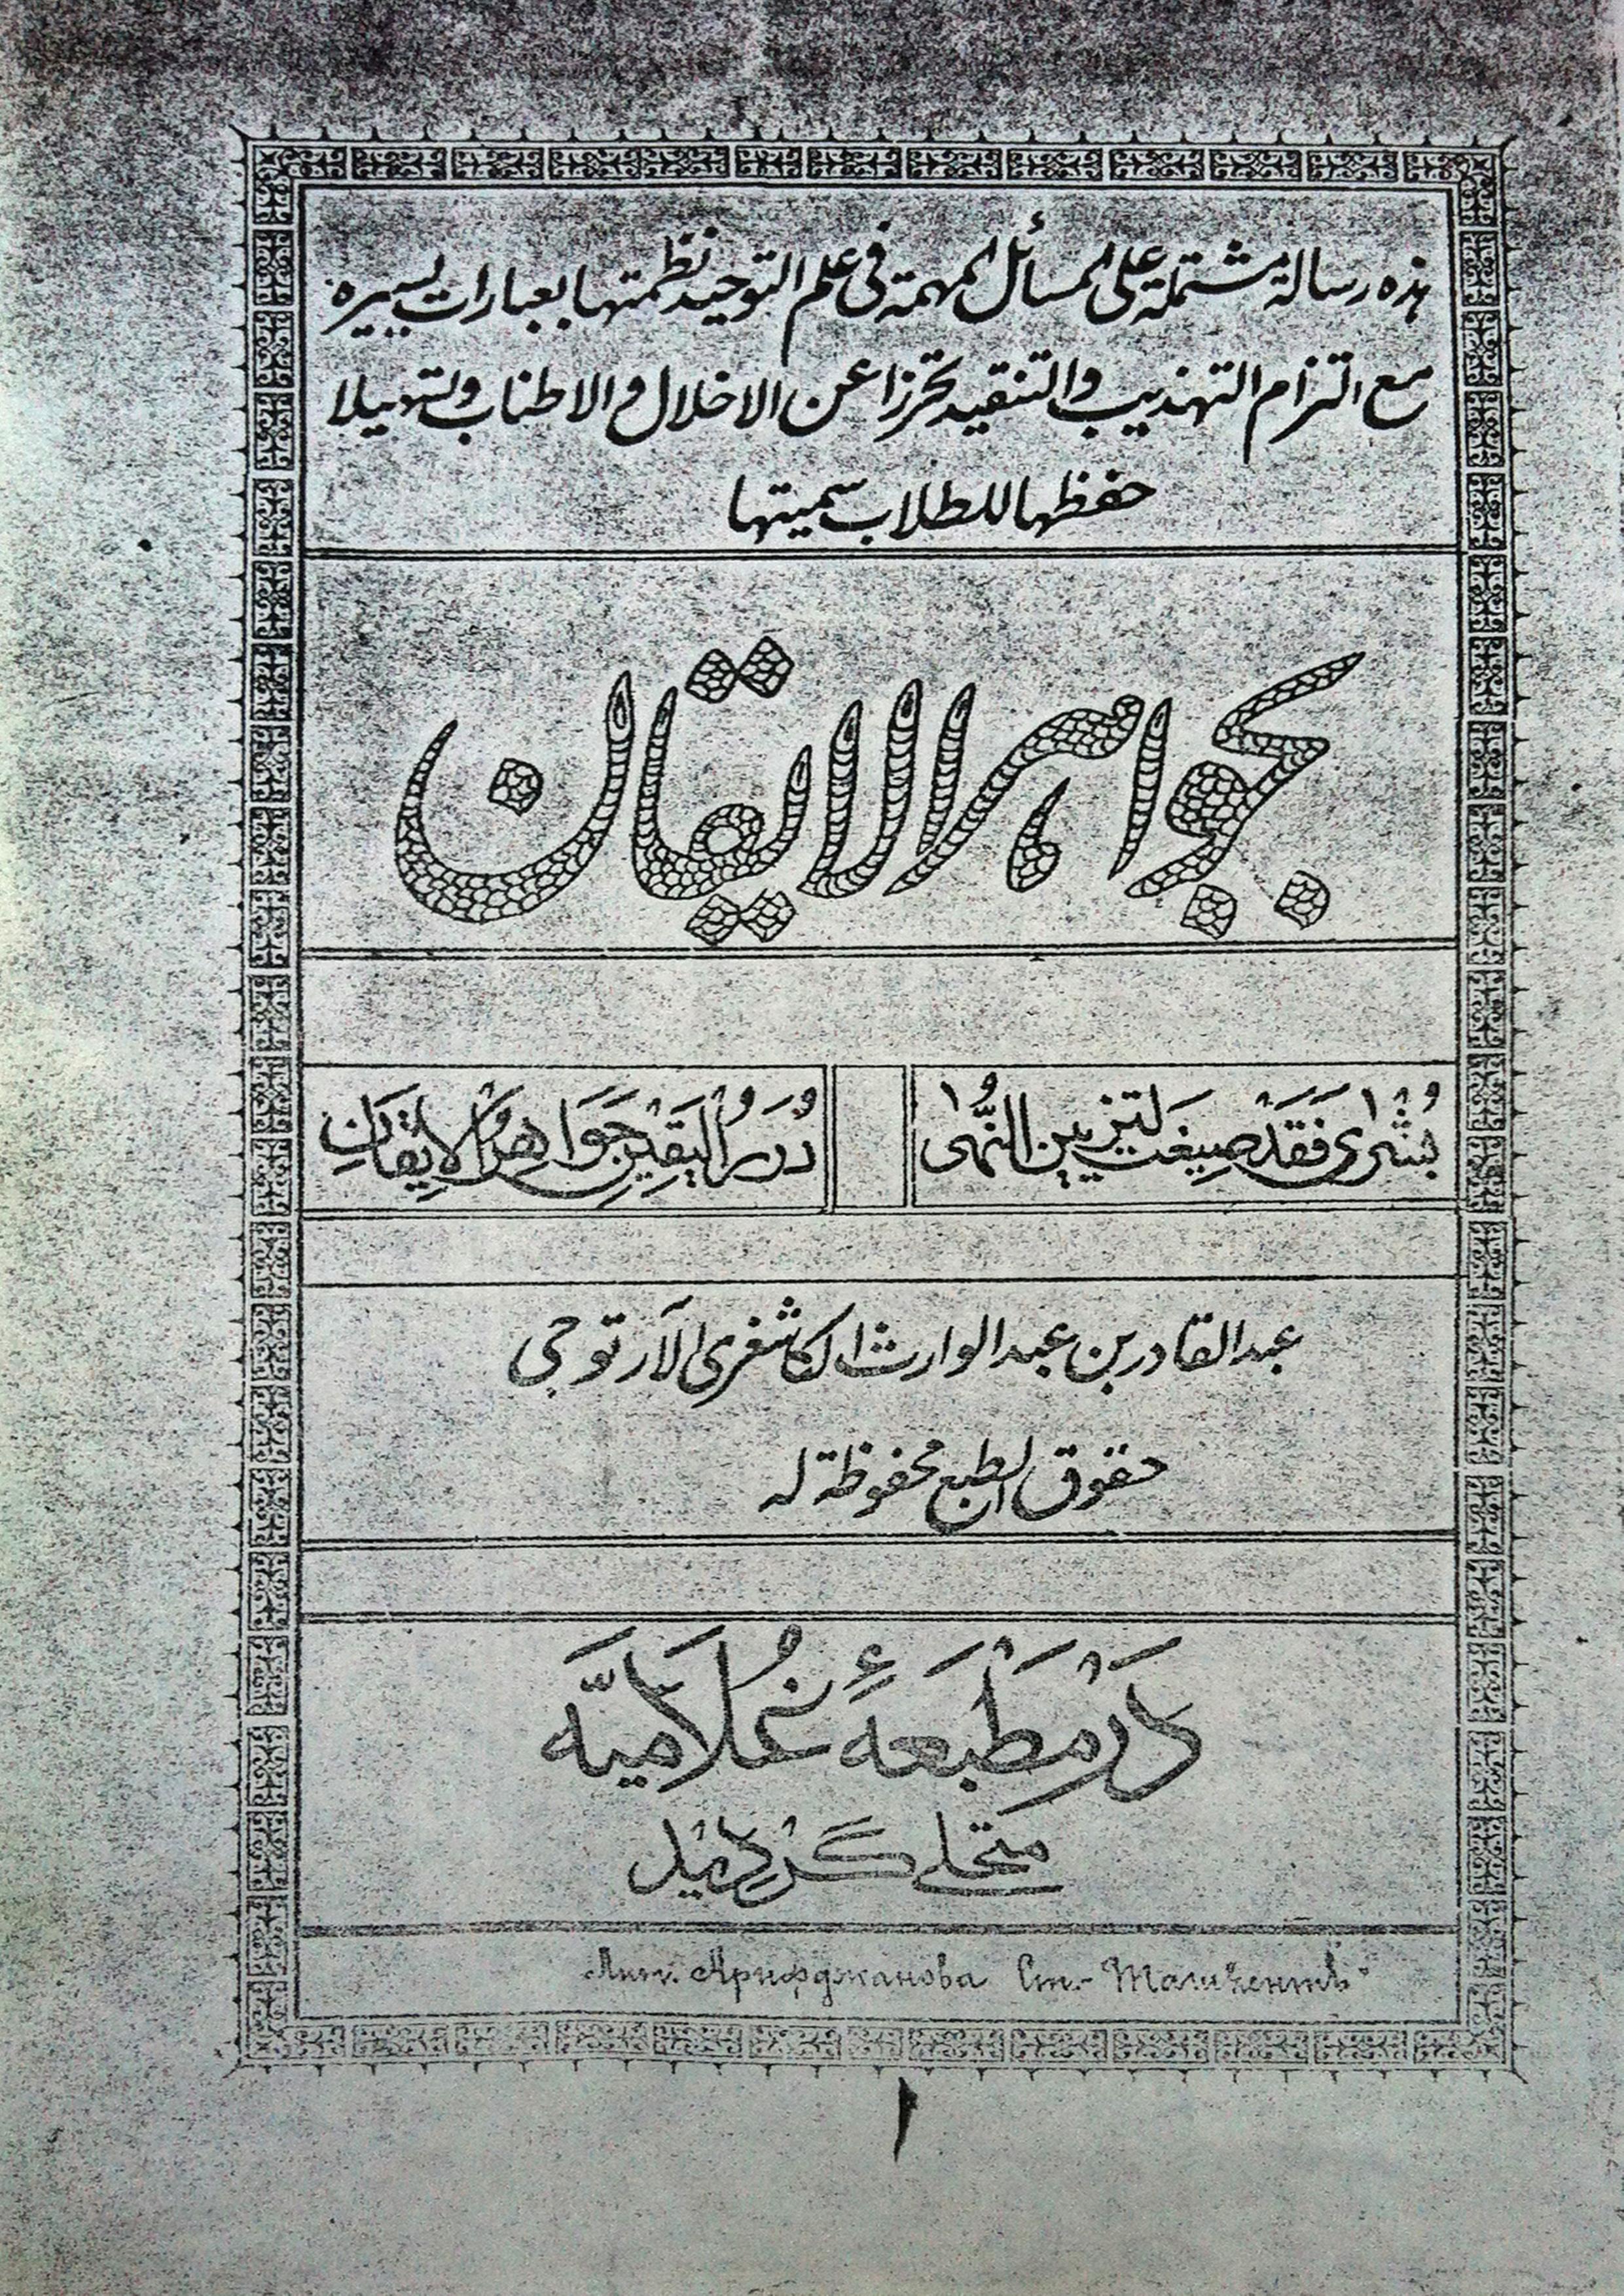 هذه رسالة مشتملة على المسائل المهمة فى علم التوحيد نظمتها بعبارات يسيره
مع التزام التهذيب والتنقيد تحرزا عن الاخلال والاطناب وتسهيلا
حفظها للطلاب سميتها
بجواهر الايقان
بُشْرٰى فَقَدْ صِيغَتْ لَتزيين النُّهٰى
دُرَرُ الْيَقِيْنِ جَوَاهِرُ الْاِيْقَانِ
عبد القادر بن عبد الوارث الكاشغرى الآرتوجى
حقوق الطبع محفوظة له
دَرْ مَطْبَعَهٔ غُلَامِيَّه
متحلے گَرْدِيْدْ
Лит. Арифджанова Ст.-Ташкентъ
١